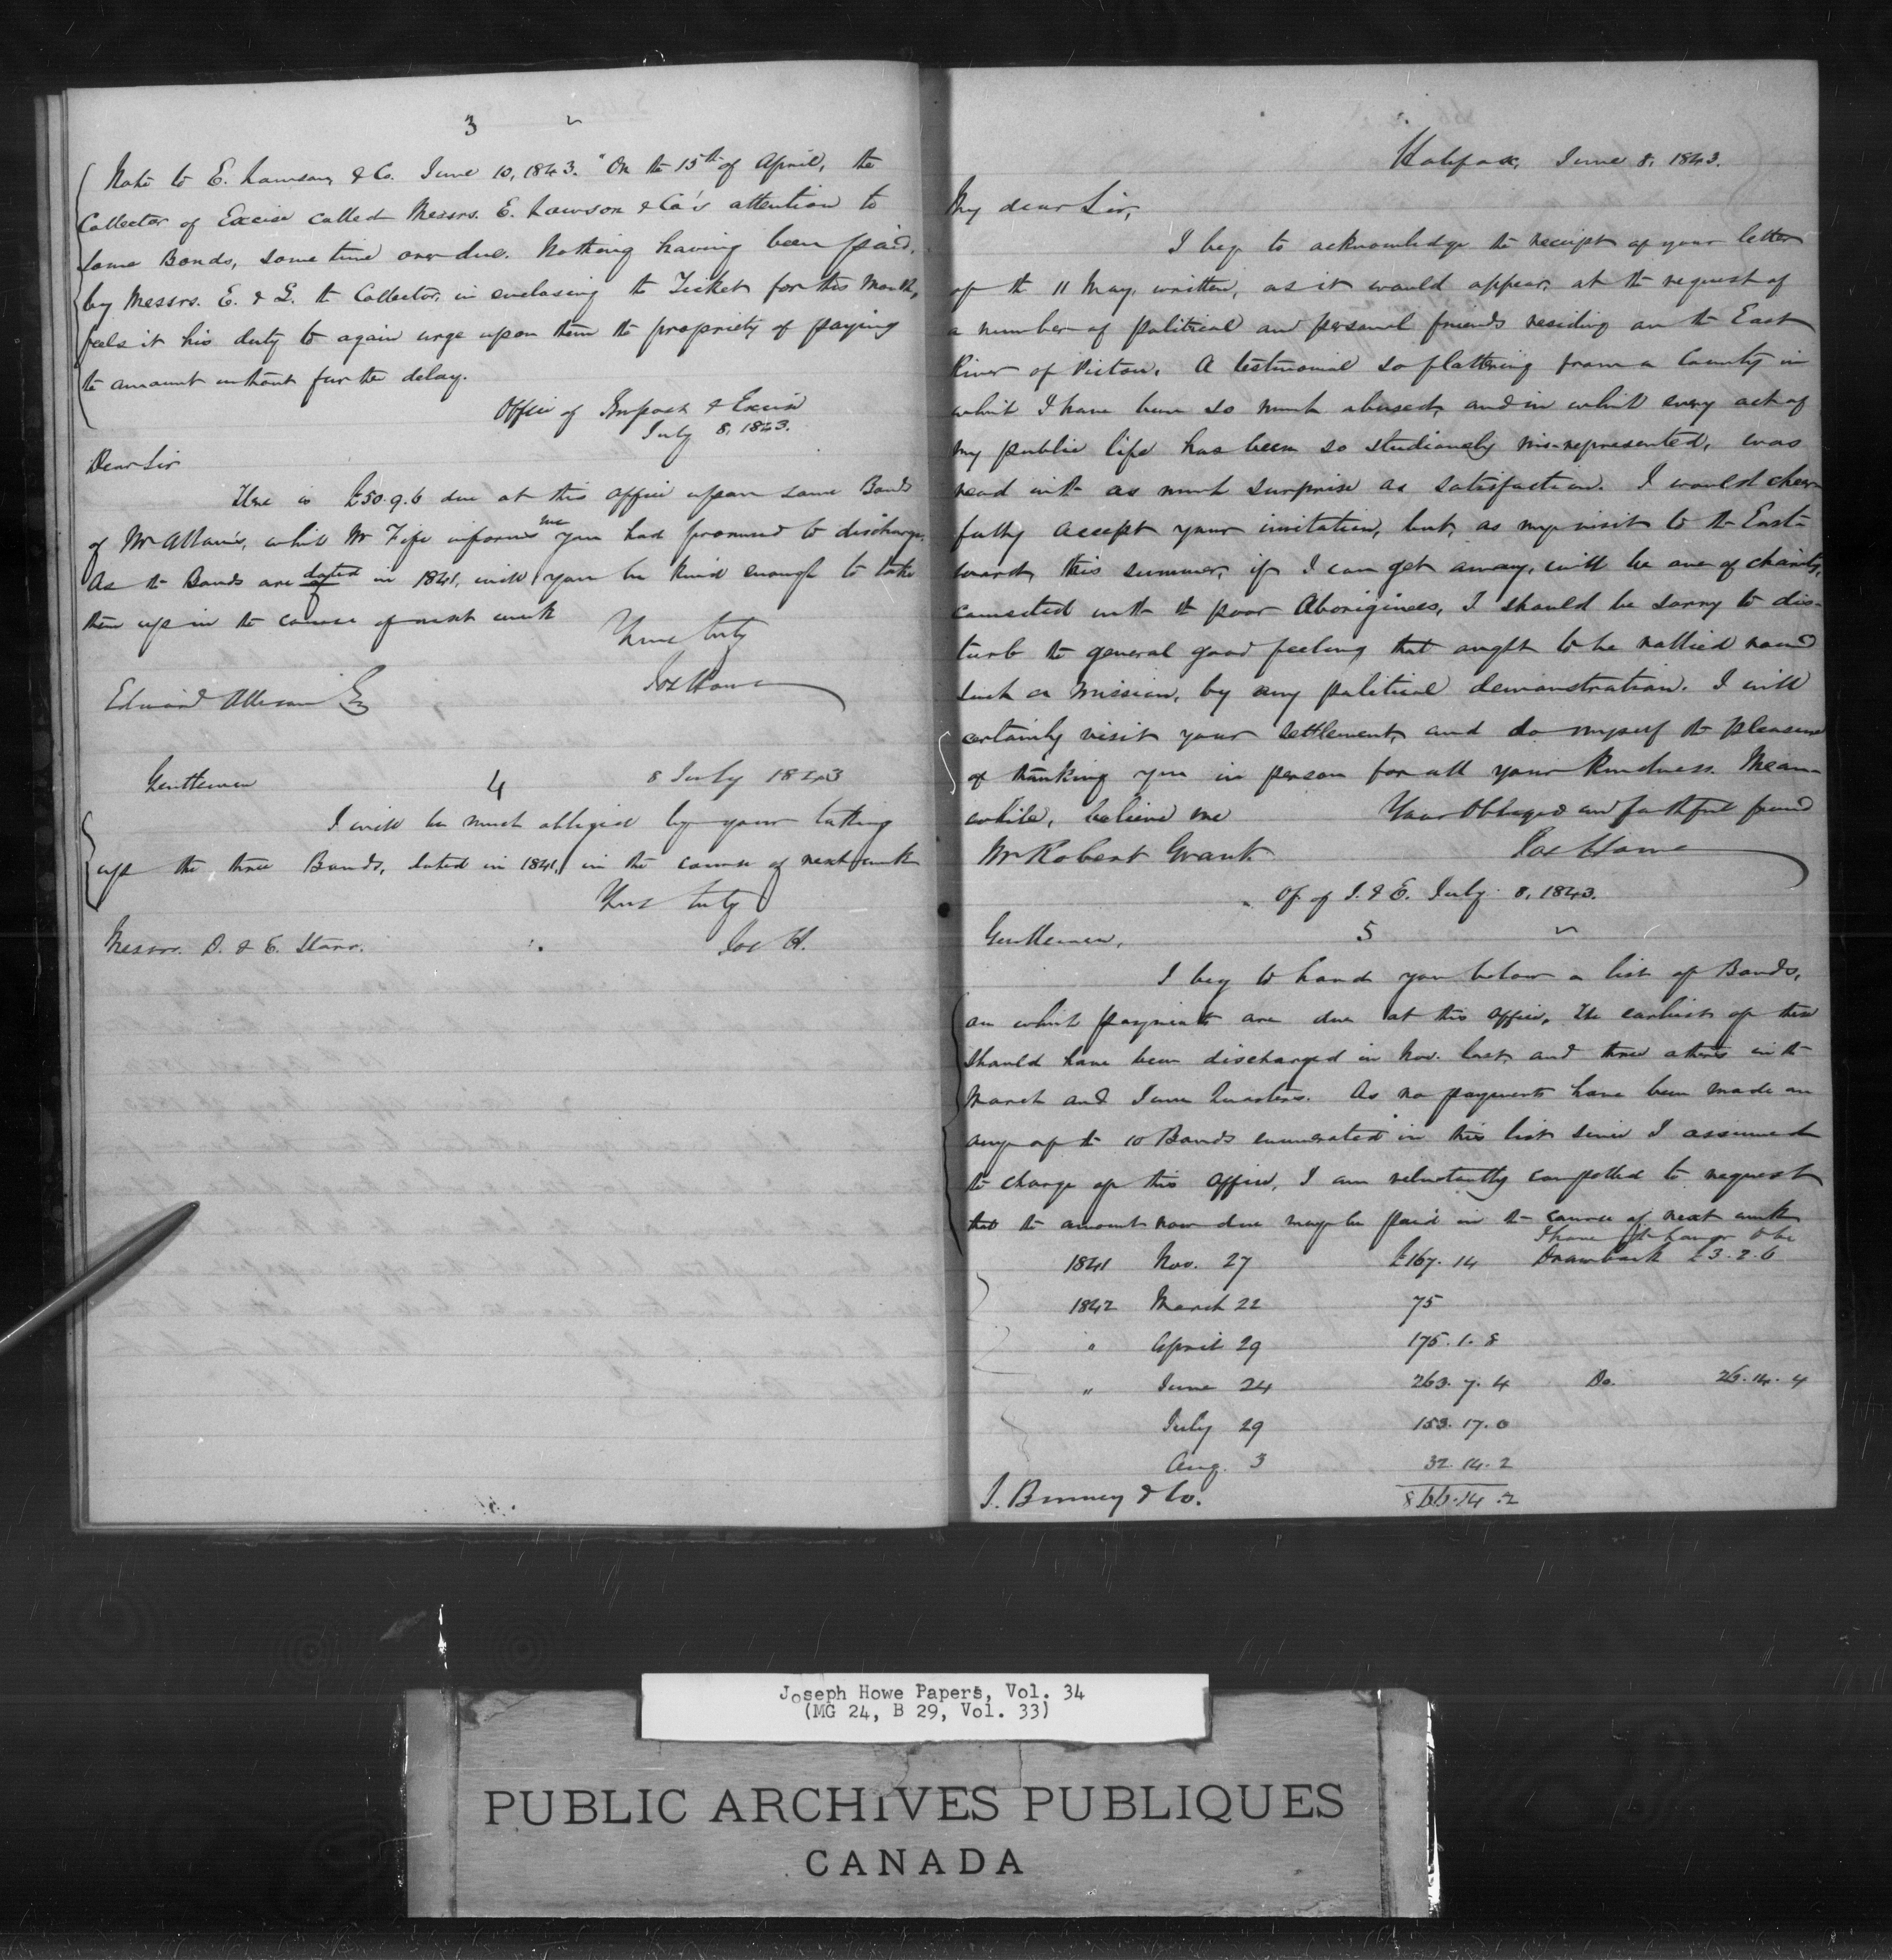 3
Note to E. Lawson & Co. June 10, 1843. "On the 15th of April, the
Collector of Excise called Messrs. E. Lawson & Co's attention to
some Bonds, some time over due. Nothing having been paid
by Messrs. E. & L. the Collector, in enclosing the Ticket for this Month,
feels it his duty to again urge upon them the propriety of paying
the amount without further delay.
Office of Impost & Excise
July 8, 1843.
Dear Sir
There is £50.9.6 due at this office upon some Bonds
of Mr Allan's, which Mr Fife informs me you had promised to discharge.
As the Bonds are dated in 1841, will you be kind enough to take
them up in the course of next week
Yours truly
Jos Howe
Edward Allison Esq
Gentlemen 4 8 July 1843
I will be much obliged by your taking
up the three Bonds, dated in 1841, in the course of next week
Yours truly
Messrs. D. & E. Starr. Jos H.
Halifax, June 8, 1843.
My dear Sir,
I beg to acknowledge the receipt of your letter
of the 11 May, written, as it would appear, at the request of
a number of political and personal friends residing on the East
River of Pictou. A testimonial so flattering from a County in
which I have been so much abused, and in which every act of
my public life has been so studiously mis-represented, was
read with as much surprise as satisfaction. I would cheer-
fully accept your invitation, but, as my visit to the East-
ward, this summer, if I can get away, will be one of charity,
connected with the poor Aborigines, I should be sorry to dis-
turb the general good feeling that ought to be rallied round
such a mission, by any political demonstration. I will
certainly visit your settlement, and do myself the pleasure
of thanking you in person for all your kindness. Mean-
while, believe me Your Obliged and faithful friend
Mr Robert Grant Jos Howe
Of. of I. & E. July 8, 1843.
Gentlemen, 5
I beg to hand you below a list of Bonds,
on which payments are due at this office. The earliest of these
should have been discharged in Nov. last, and three others in the
March and June Quarters. As no payments have been made on
any of the 10 Bonds enumerated in this list since I assumed
the charge of this office, I am reluctantly compelled to request
that the amount now due may be paid in the course of next week
I have the honor to be
1841 Nov. 27 £167.14 Drawback £3.2.6
1842 March 22 75
" April 29 175.1.8
" June 24 263.7.4 Do. 26.14.4
July 29 153.17.0
Aug. 3 32.14.2
J. Binney & Co. 866.14.2
Joseph Howe Papers, Vol. 34
(MG 24, B 29, Vol. 33)
PUBLIC ARCHIVES PUBLIQUES
CANADA